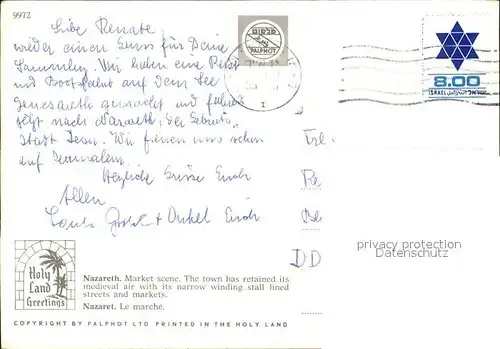 9972
Liebe Renate,
wieder einen Gruss für Deine
Sammlung. Wir haben eine
und Bootsfahrt auf dem See
Genezareth gemacht und fahren
jetzt nach Nazareth, der Geburts-
stadt Jesu. Wir freuen uns schon
auf Jerusalem.
Herzliche Grüsse Euch
Allen
Onkel Erich
PALPHOT
8.00
ISRAEL اسرائيل ישראל
DD
privacy protection
Datenschutz
Holy
Land
Greetings
Nazareth. Market scene. The town has retained its
medieval air with its narrow winding stall lined
streets and markets.
Nazaret. Le marché.
COPYRIGHT BY PALPHOT LTD PRINTED IN THE HOLY LAND